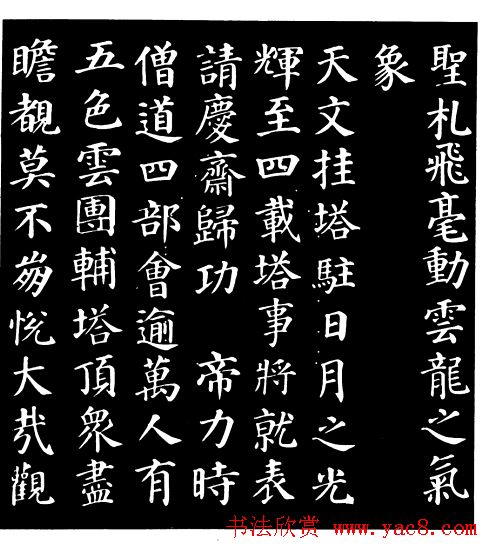 聖札飛毫動雲龍之氣
象
天文挂塔駐日月之光
輝至四載塔事將就表
請慶齋歸功 帝力時
僧道四部會逾萬人有
五色雲團輔塔頂眾盡
瞻覩莫不崩悅大哉觀
书法欣赏 www.yac8.com